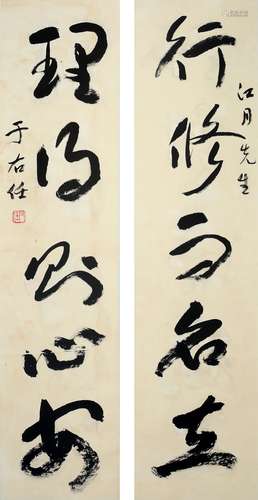 江月先生
行修而名立
理得則心安
于右任